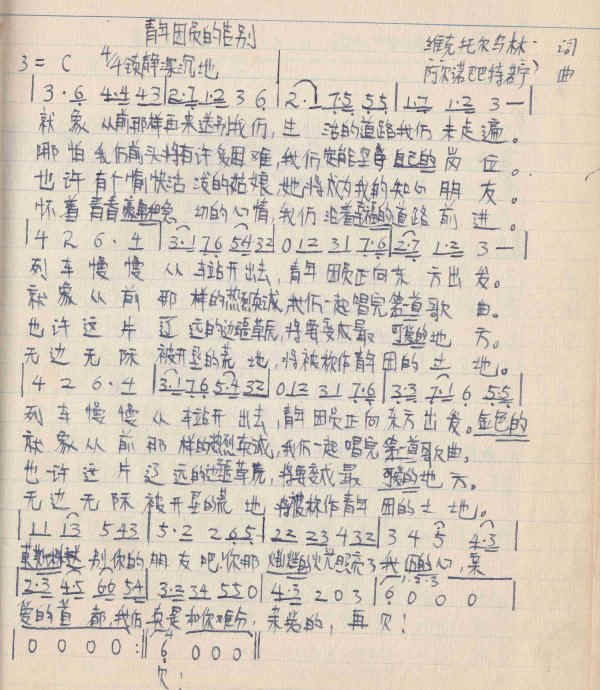 青年团员的告别
维克托尔与林 词
3 = C 4/4 镇静深沉地
阿尔诺巴特若宁 曲
3·6 4·4 43 | 2·7 1·2 3 6 | 2· 75 55 | 1·7 1·2 3 — |
就象从前那样再来送别我们,生活的道路我们未走遍。
哪怕我们前头将有许多困难,我们定能坚守自己的岗位。
也许有个愉快活泼的姑娘,她将成为我的知心朋友。
怀着青春 切的心情,我们沿着 的道路前进。
| 4 2 6· 4 | 3·1 76 54 32 | 0 12 31 7·6 | 2·7 1·2 3 — |
列车慢慢从车站开出去,青年团员正向东方出发。
就象从前那样的热烈真诚,我们一起唱完这首歌曲。
也许这片辽远的边疆草原,将要变成最可爱的地方。
无边无际被开垦的荒地,将被称作青年团的土地。
| 4 2 6· 4 | 3·1 76 5·4 32 | 0 12 31 7·6 | 3·3 7·1 6 55 |
列车慢慢从车站开出去,青年团员正向东方出发。金色的
就象从前那样的热烈真诚,我们一起唱完这首歌曲。
也许这片辽远的边疆草原,将要变成最可爱的地方。
无边无际被开垦的荒地,将被称作青年团的土地。
| 11 13 5 43 | 5·2 2 65 | 22 23 4 32 | 3 4 5 4·3 |
别你的朋友吧,你那 的光照亮了我们的心,亲
2·3 45 60 54 | 3·2 34 55 0 | 4·3 2 0 3 | 6 0 0 0 |
1·5·3
爱的首都,我们真是和你难分,亲爱的,再见!
| 0 0 0 0 :|| 6 0 0 0 ||
见!